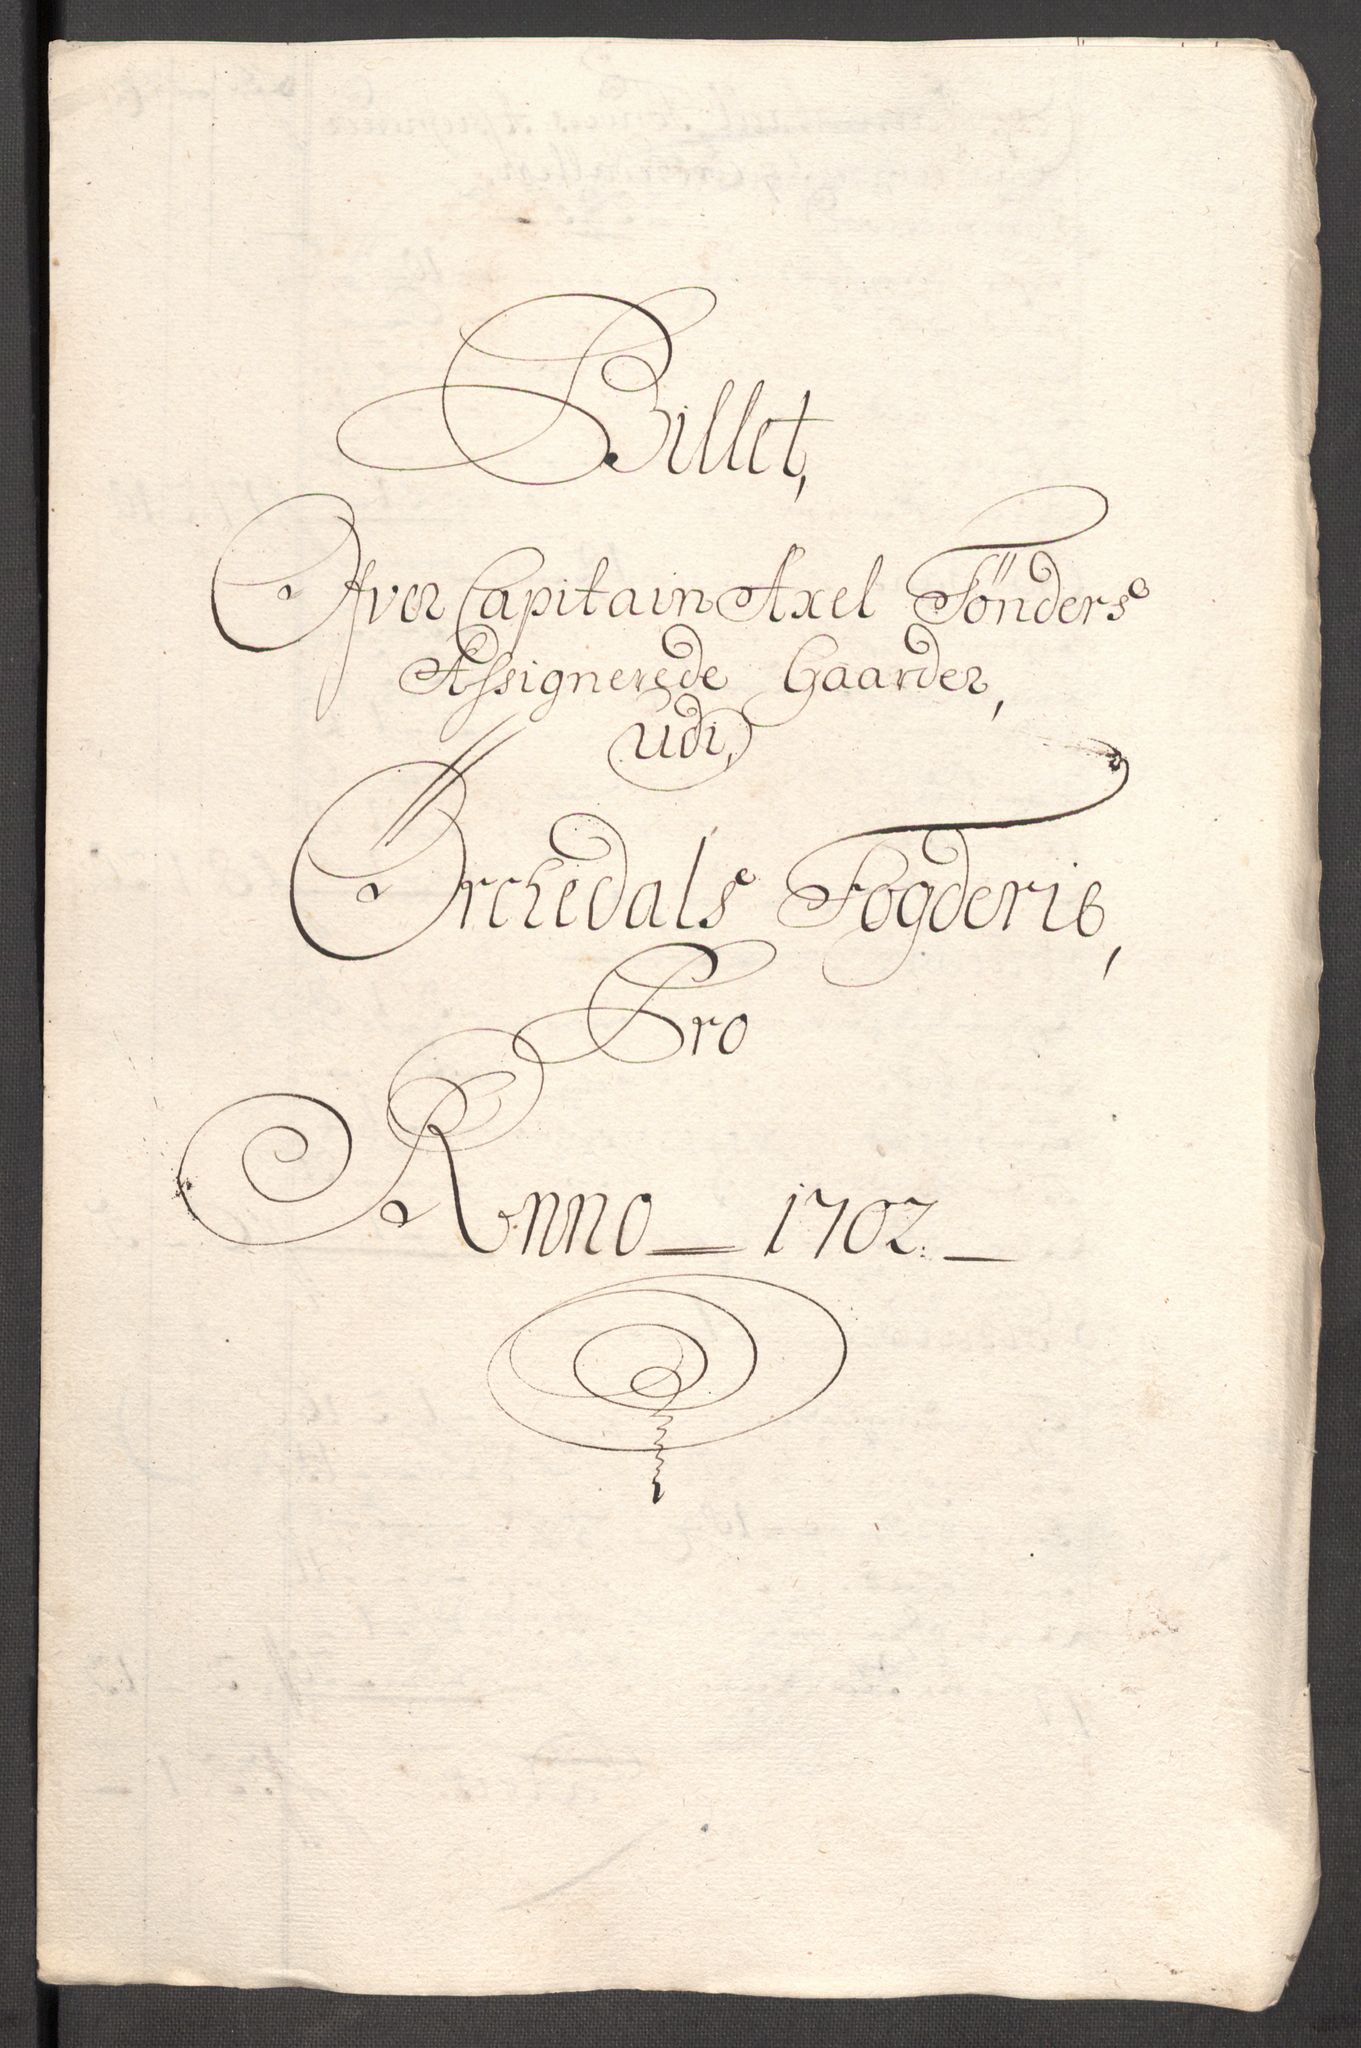 Billet,
Ofver Capitain Axel Tönders
Assignerede Gaarder,
udi,
Orchedals Fogderie,
Pro
Anno 1702.